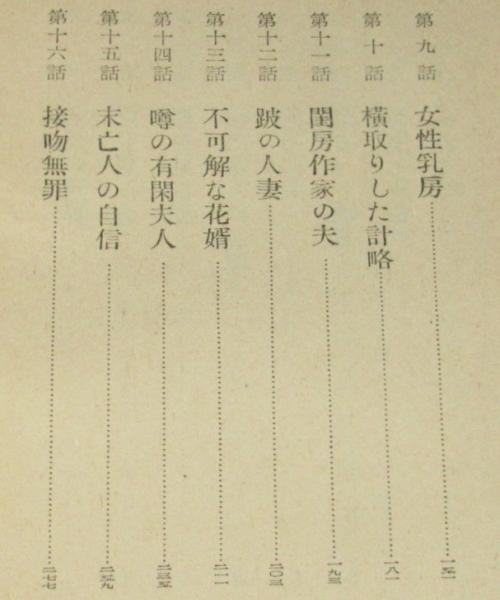 第九話 女性乳房 一五一
第十話 横取りした計略 一八一
第十一話 閨房作家の夫 一九三
第十二話 跛の人妻 二〇三
第十三話 不可解な花婿 二一一
第十四話 噂の有閑夫人 二三五
第十五話 末亡人の自信 二五九
第十六話 接吻無罪 二七七